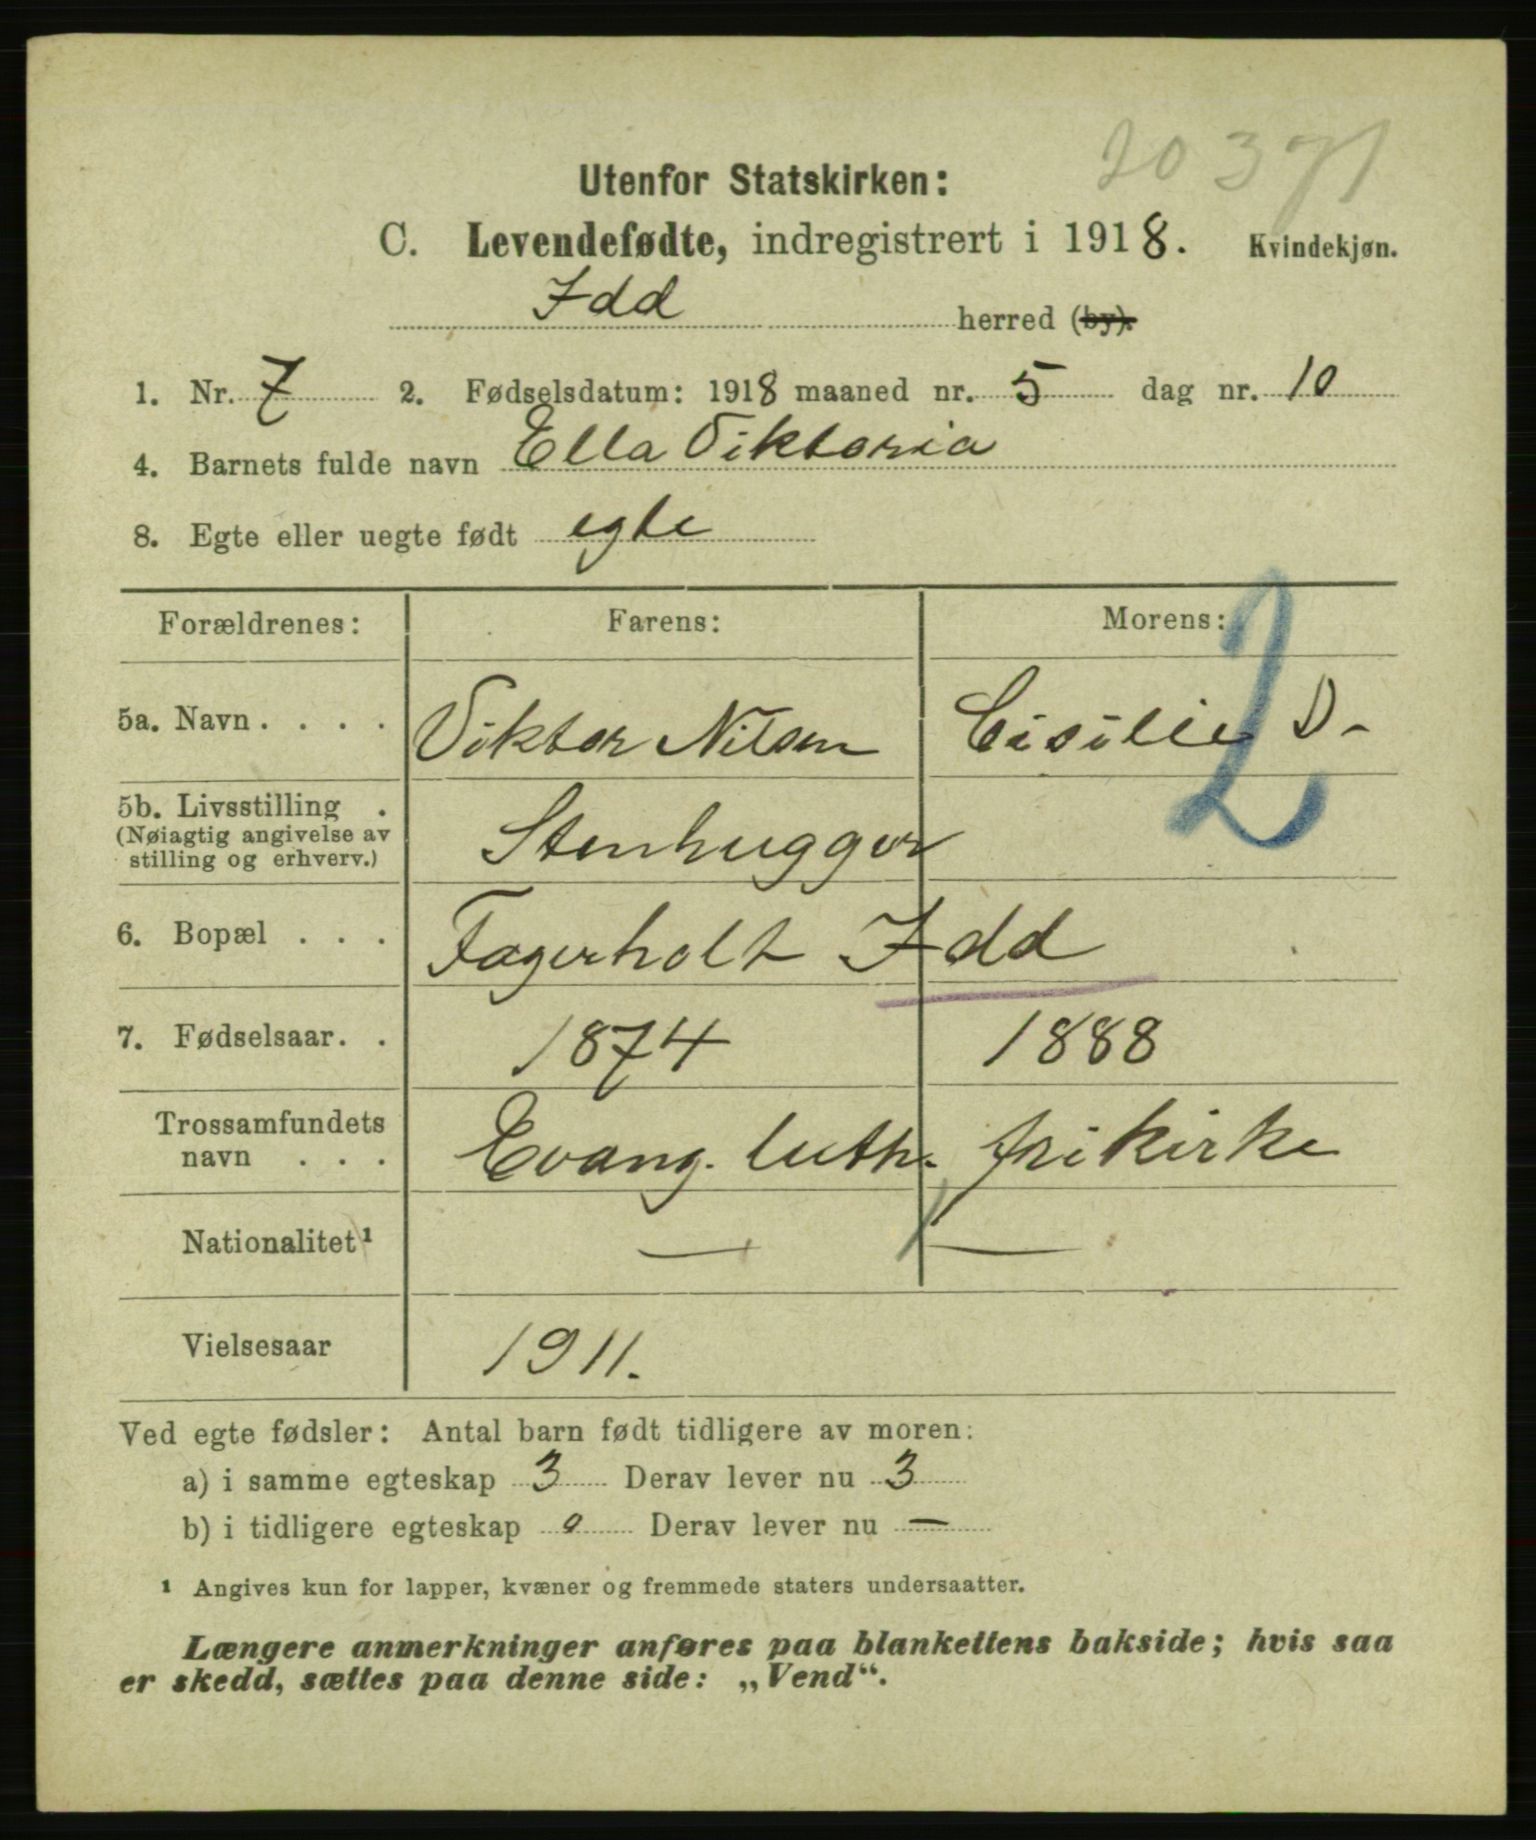 20 371
Utenfor Statskirken:
C. Levendefødte, indregistrert i 1918. Kvindekjøn.
Idd herred (by).
1. Nr. 7 2. Fødselsdatum: 1918 maaned nr. 5 dag nr. 10
4. Barnets fulde navn Ella Viktoria
8. Egte eller uegte født egte
Forældrenes: Farens: Morens:
2
5a. Navn . . . . Viktor Nilsen Cisilie D-
5b. Livsstilling . Stenhugger
(Nøiagtig angivelse av
stilling og erhverv.)
6. Bopæl . . . Fagerholt Idd
7. Fødselsaar. . 1874 1888
Trossamfundets
navn . . . Evang. luth. frikirke
Nationalitet¹ — —
Vielsesaar 1911.
Ved egte fødsler: Antal barn født tidligere av moren:
a) i samme egteskap 3 Derav lever nu 3
b) i tidligere egteskap 0 Derav lever nu —
¹ Angives kun for lapper, kvæner og fremmede staters undersaatter.
Længere anmerkninger anføres paa blankettens bakside; hvis saa
er skedd, sættes paa denne side: „Vend“.